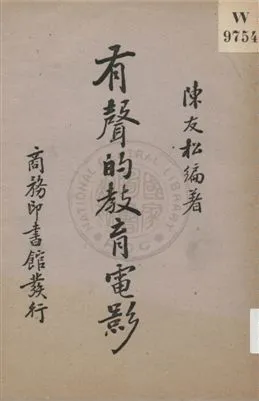 W
9754
陳友松編著
有聲的教育電影
商務印書館發行
NATIONAL CENTRAL LIBRARY